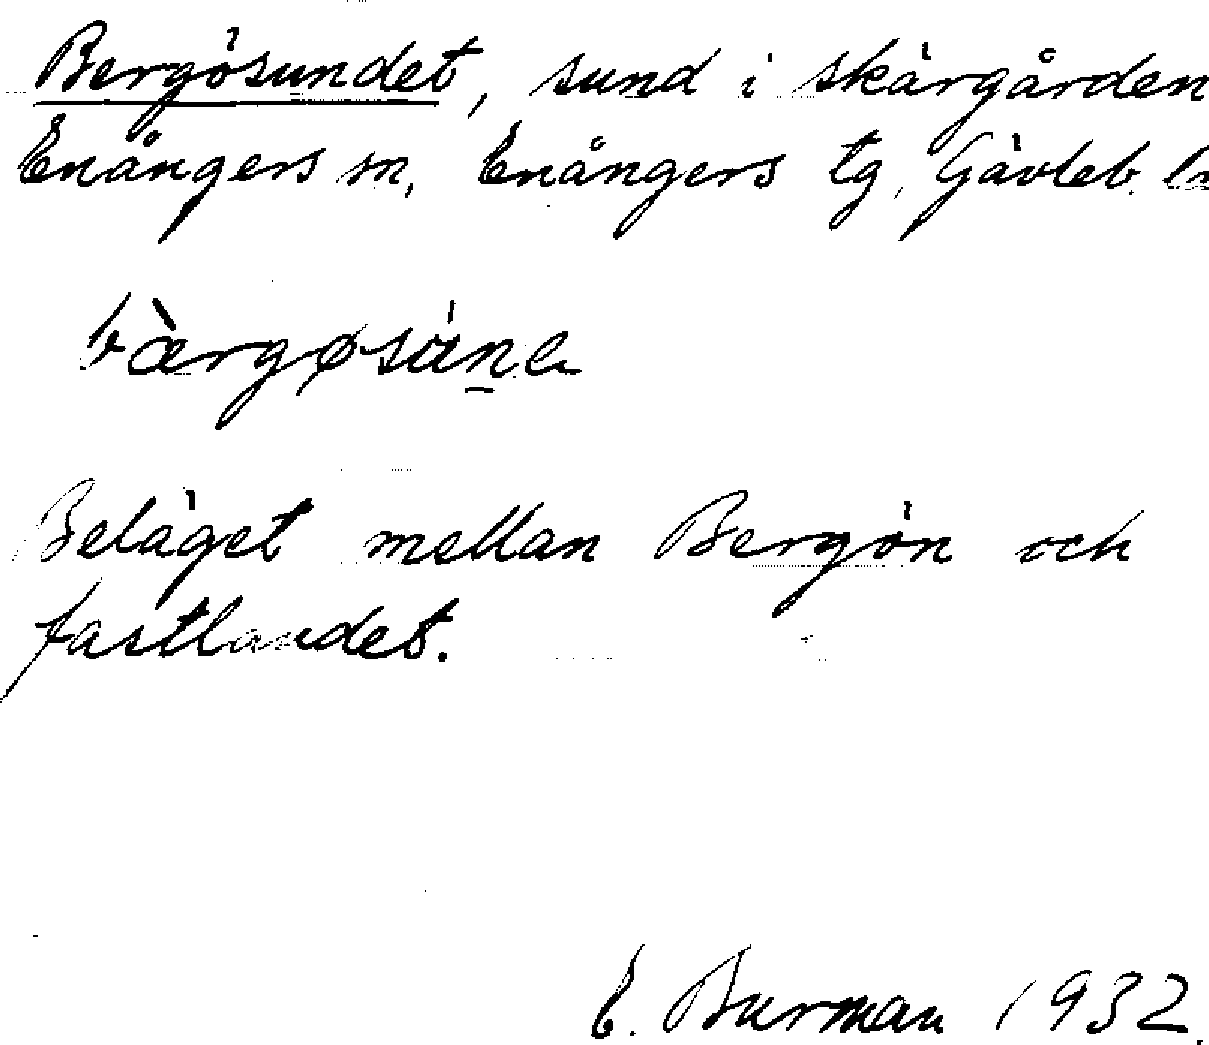 Bergösundet, sund i skärgården
Enångers sn, Enångers tg, Gävleb. l
bàrgøsúnₑ
Beläget mellan Bergön och
fastlandet.
E. Burman 1932.